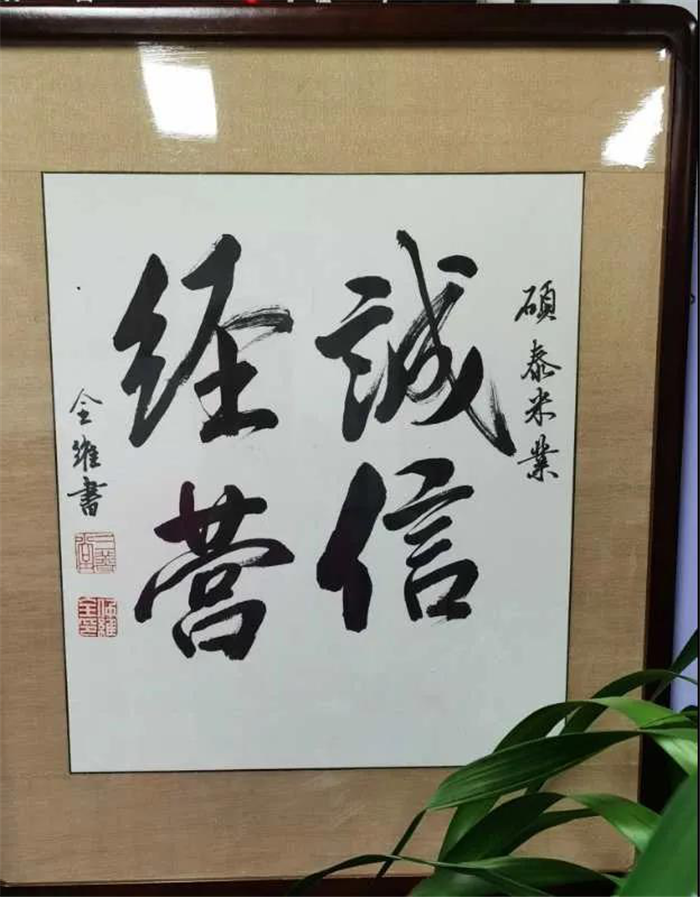 碩泰米業
誠信
经营
全維書